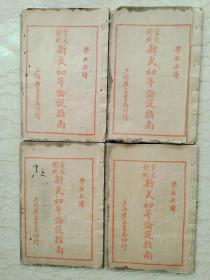 學生必讀
言文對照
新式初等論說指南
上海廣益書局印行
學生必讀
言文對照
新式初等論說指南
上海廣益書局印行
學生必讀
言文對照
新式初等論說指南
上海廣益書局印行
學生必讀
言文對照
新式初等論說指南
上海廣益書局印行